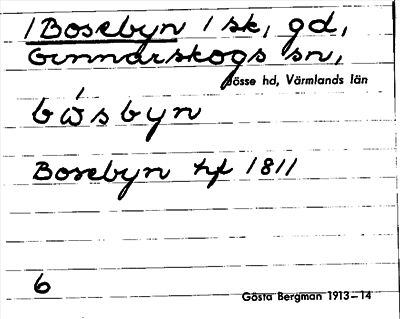 /Bosebyn / sk, gd,
Gunnarskogs sn,
Jösse hd, Värmlands län
bώsbyn
Bosebyn hfl 1811
6
Gösta Bergman 1913–14